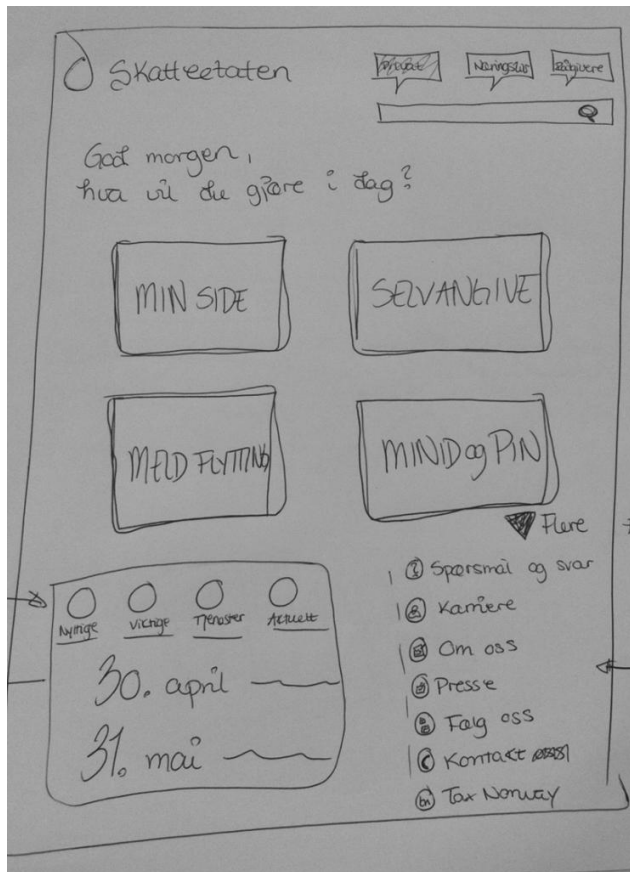 Skatteetaten
Privat Næringsliv Rådgivere
God morgen,
hva vil du gjøre i dag?
MIN SIDE
SELVANGIVE
MELD FLYTTING
MINID og PIN
Flere
Nyttige
Viktige
Tjenester
Aktuelt
30. april
31. mai
Spørsmål og svar
Karriere
Om oss
Presse
Følg oss
Kontakt oss
Tax Norway